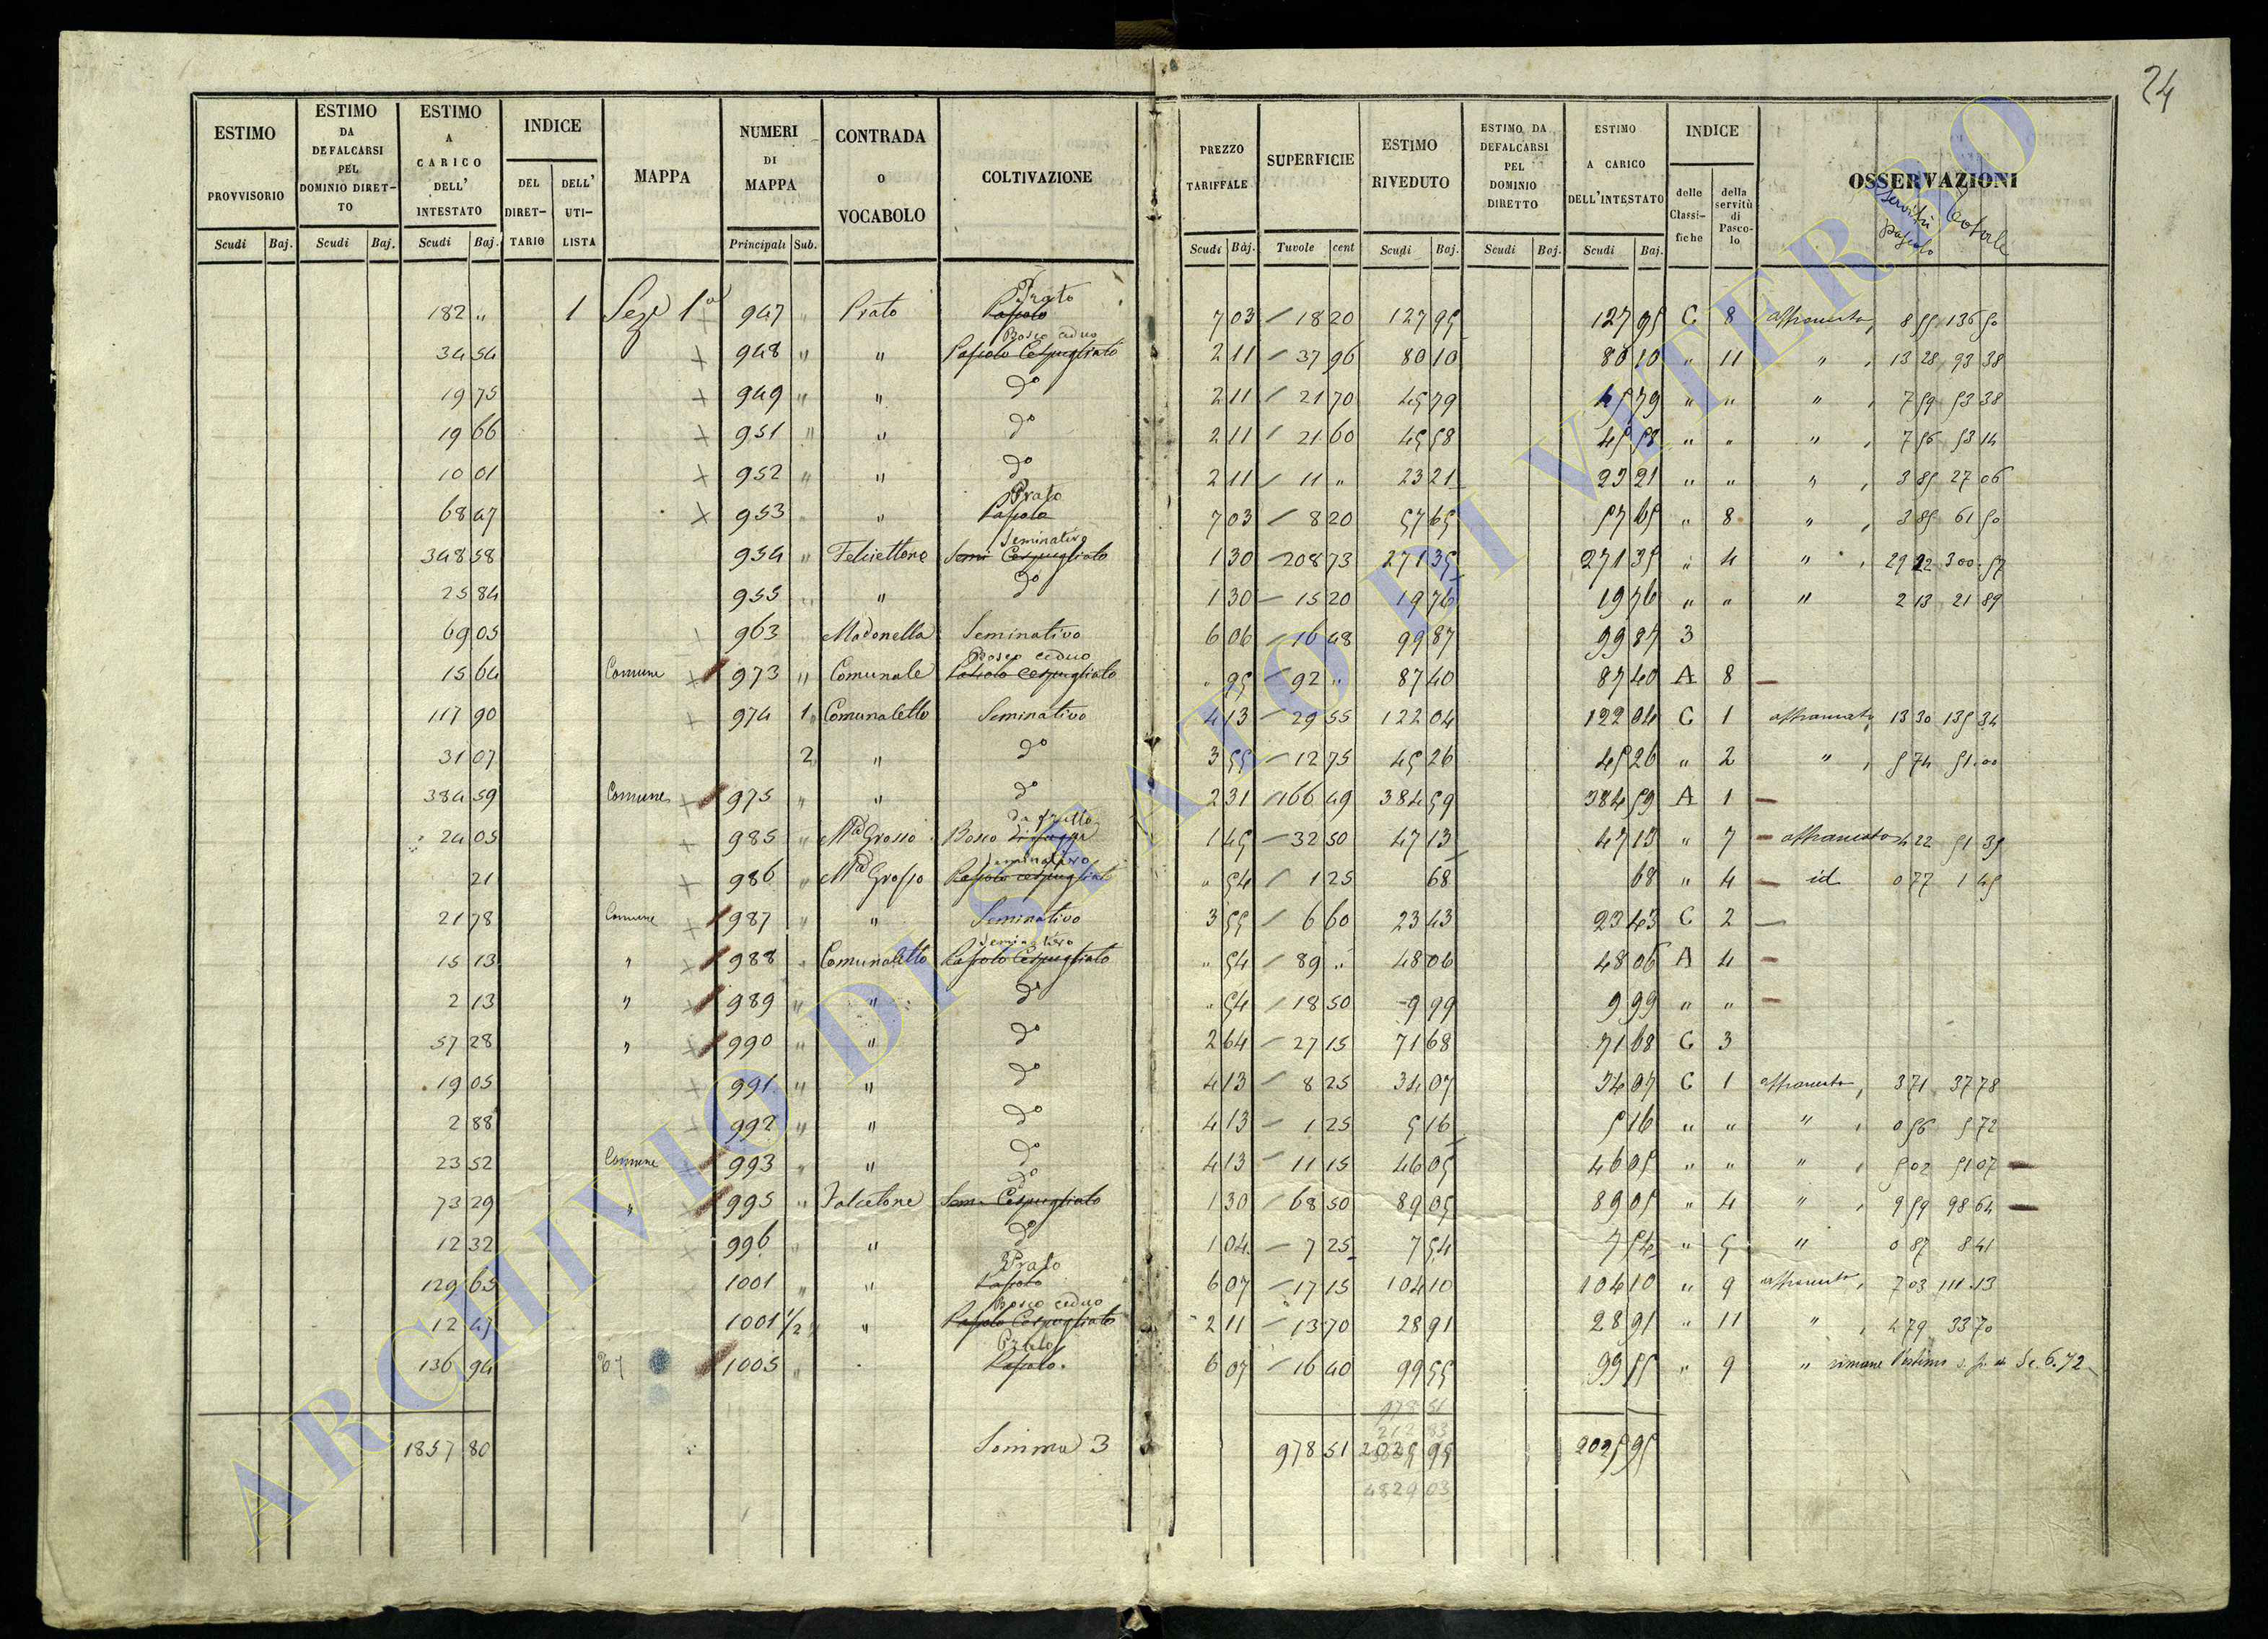 24
ESTIMO PROVVISORIO Scudi Baj. ESTIMO DA DEFALCARSI PEL DOMINIO DIRETTO Scudi Baj. ESTIMO A CARICO DELL' INTESTATO Scudi Baj. INDICE DEL DIRETTARIO DELL' UTILISTA MAPPA NUMERI DI MAPPA Principali Sub. CONTRADA O VOCABOLO COLTIVAZIONE PREZZO TARIFFALE Scudi Bàj. SUPERFICIE Tuvole cent ESTIMO RIVEDUTO Scudi Baj. ESTIMO DA DEFALCARSI PEL DOMINIO DIRETTO Scudi Baj. ESTIMO A CARICO DELL'INTESTATO Scudi Baj. INDICE delle Classifiche della servitù di Pascolo OSSERVAZIONI servitù pascolo totale
182 " 1 Seze 1a 947 " Prato Prato Pascolo 7 03 18 20 127 95 127 95 C 8 affrancata 8 55 136 50
34 54 948 " " Bosco ceduo Pascolo Cespugliato 2 11 37 96 80 10 80 10 " 11 " 13 28 93 38
19 75 949 " " do 2 11 21 70 45 79 45 79 " " " 7 59 53 38
19 66 951 " " do 2 11 21 60 45 58 45 58 " " " 7 56 53 14
10 01 952 " " do 2 11 11 " 23 21 23 21 " " " 3 85 27 06
68 47 953 " " Prato Pascolo 7 03 8 20 57 65 57 65 " 8 " 3 85 61 50
348 58 954 " Felciettone Seminativo Semi Cespugliato 1 30 208 73 271 35 271 35 " 4 " 29 22 300 57
25 84 955 " " do 1 30 15 20 19 76 19 76 " " " 2 13 21 89
69 05 963 Madonella Seminativo 6 06 16 48 99 87 99 87 3
15 64 Comune 973 " Comunale Bosco ceduo Pascolo cespugliato " 95 92 " 87 40 87 40 A 8
117 90 974 1 Comunaletto Seminativo 4 13 29 55 122 04 122 04 C 1 affrancata 13 30 135 34
31 07 2 " do 3 55 12 75 45 26 45 26 " 2 " 5 74 51 00
384 59 Comune 975 " " do 2 31 166 49 384 59 384 59 A 1
24 05 985 " Mte Grosso Bosco da frutto 1 45 32 50 47 13 47 13 " 7 affrancata 4 22 51 35
21 986 " Mte Grosso Seminativo Pascolo cespugliato " 54 1 25 68 68 " 4 id 0 77 1 45
21 78 Comune 987 " " Seminativo 3 55 6 60 23 43 23 43 C 2
15 13 " 988 " Comunaletto Seminativo Pascolo Cespugliato " 54 89 " 48 06 48 06 A 4
2 13 " 989 " " do " 54 18 50 9 99 9 99 " "
57 28 " 990 " " do 2 64 27 15 71 68 71 68 C 3
19 05 991 " " do 4 13 8 25 34 07 34 07 C 1 affrancata 3 71 37 78
2 88 992 " " do 4 13 1 25 5 16 5 16 " " " 0 56 5 72
23 52 Comune 993 " " do 4 13 11 15 46 05 46 05 " " " 5 02 51 07
73 29 " 995 " Falcetone do Sem. Cespugliato 1 30 68 50 89 05 89 05 " 4 " 9 59 98 64
12 32 996 " " do 1 04 7 25 7 54 7 54 " 5 " 0 87 8 41
129 65 1001 " " Prato Pascolo 6 07 17 15 104 10 104 10 " 9 affrancata 7 03 111 13
12 47 1001 1/2 " " Bosco ceduo Pascolo Cespugliato 2 11 13 70 28 91 28 91 " 11 " 4 79 33 70
136 94 1005 " Prato Pascolo 6 07 16 40 99 55 99 55 " 9 " rimane Sc. 6.72
978 51
1857 80 Somma 3 978 51 2025 95 2025 95
4829 03
ARCHIVIO DI STATO DI VITERBO